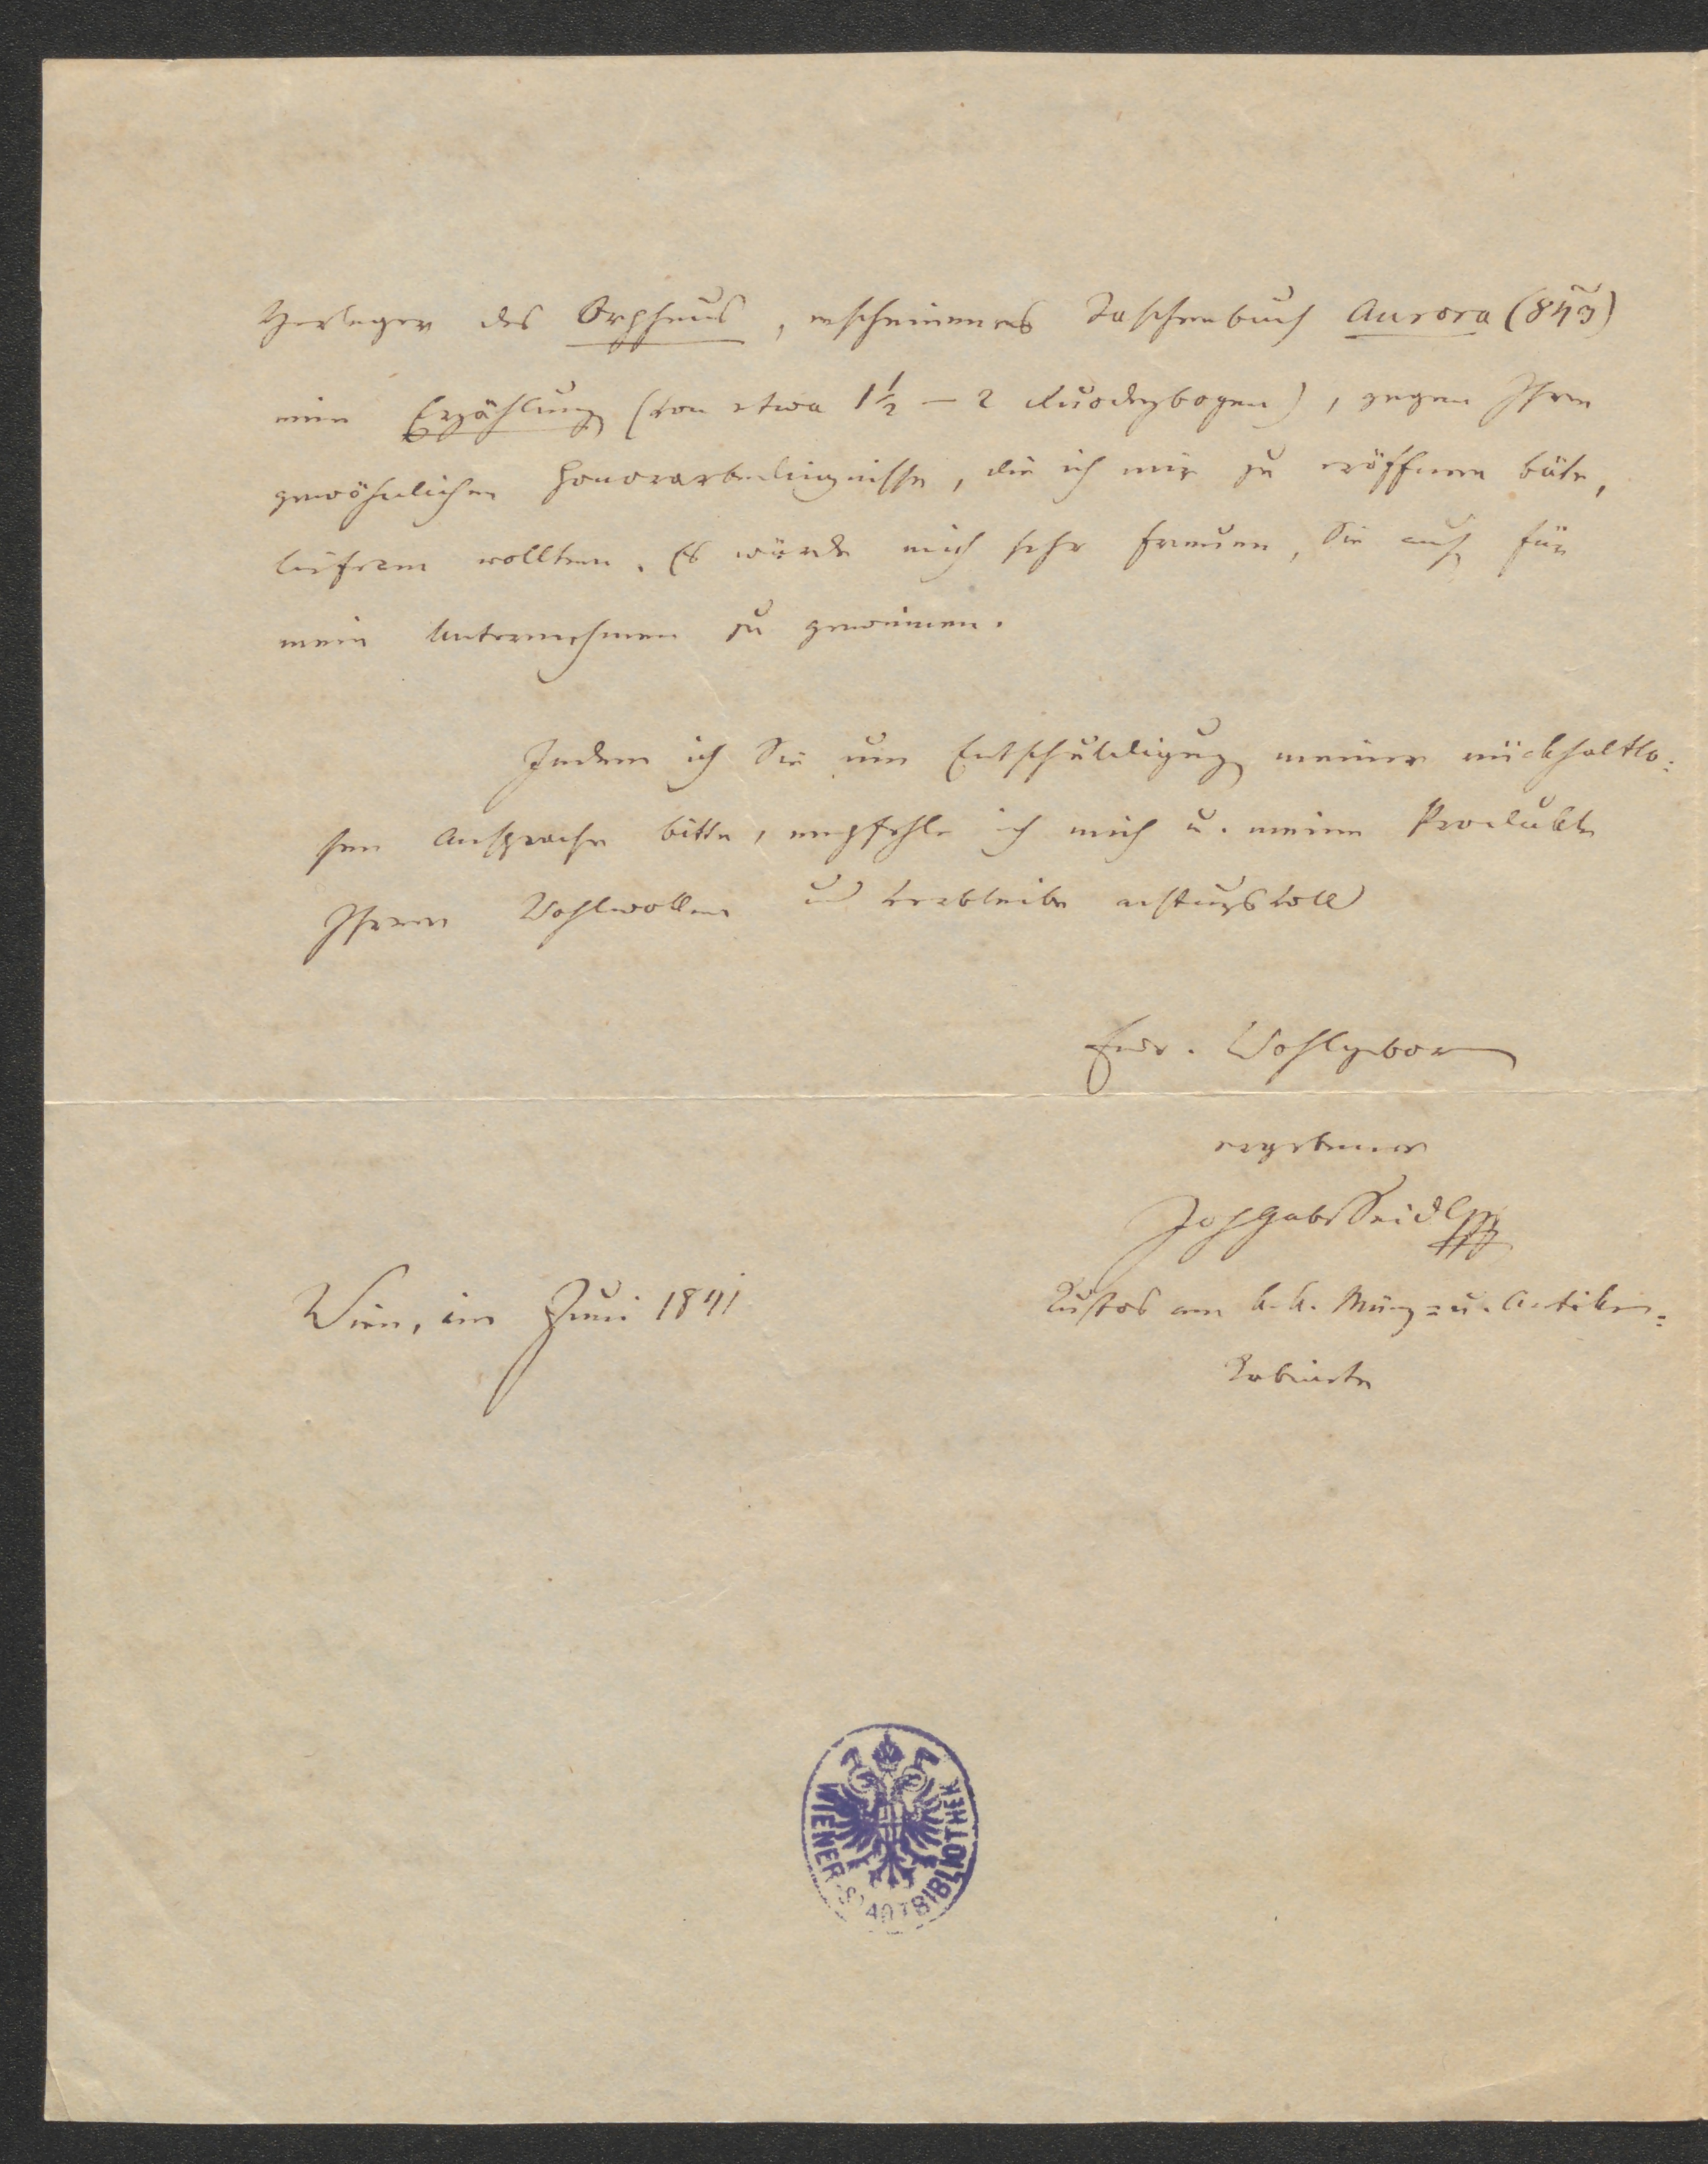 Verleger des Orpheus, erscheinendes Taschenbuch Aurora (843)
eine Erzählung (von etwa 1½ – 2 Duodezbogen), gegen Ihre
gewöhnlichen Honorarbedingnisse, die ich mir zu eröffnen bäte,
liefern wollten. Es würde mich sehr freuen, Sie auch für
mein Unternehmen zu gewinnen.
Indem ich Sie um Entschuldigung meiner rückhaltlo=
sen Ansprache bitte, empfehle ich mich u. meine Produkte
Ihrem Wohlwollen und verbleibe achtungsvoll
Euer. Wohlgeboren
ergebener
Joh Gab Seidl
Wien, im Juni 1841
Kustos am k. k. Münz= u. Antiken=
Kabinete
WIENER STADTBIBLIOTHEK